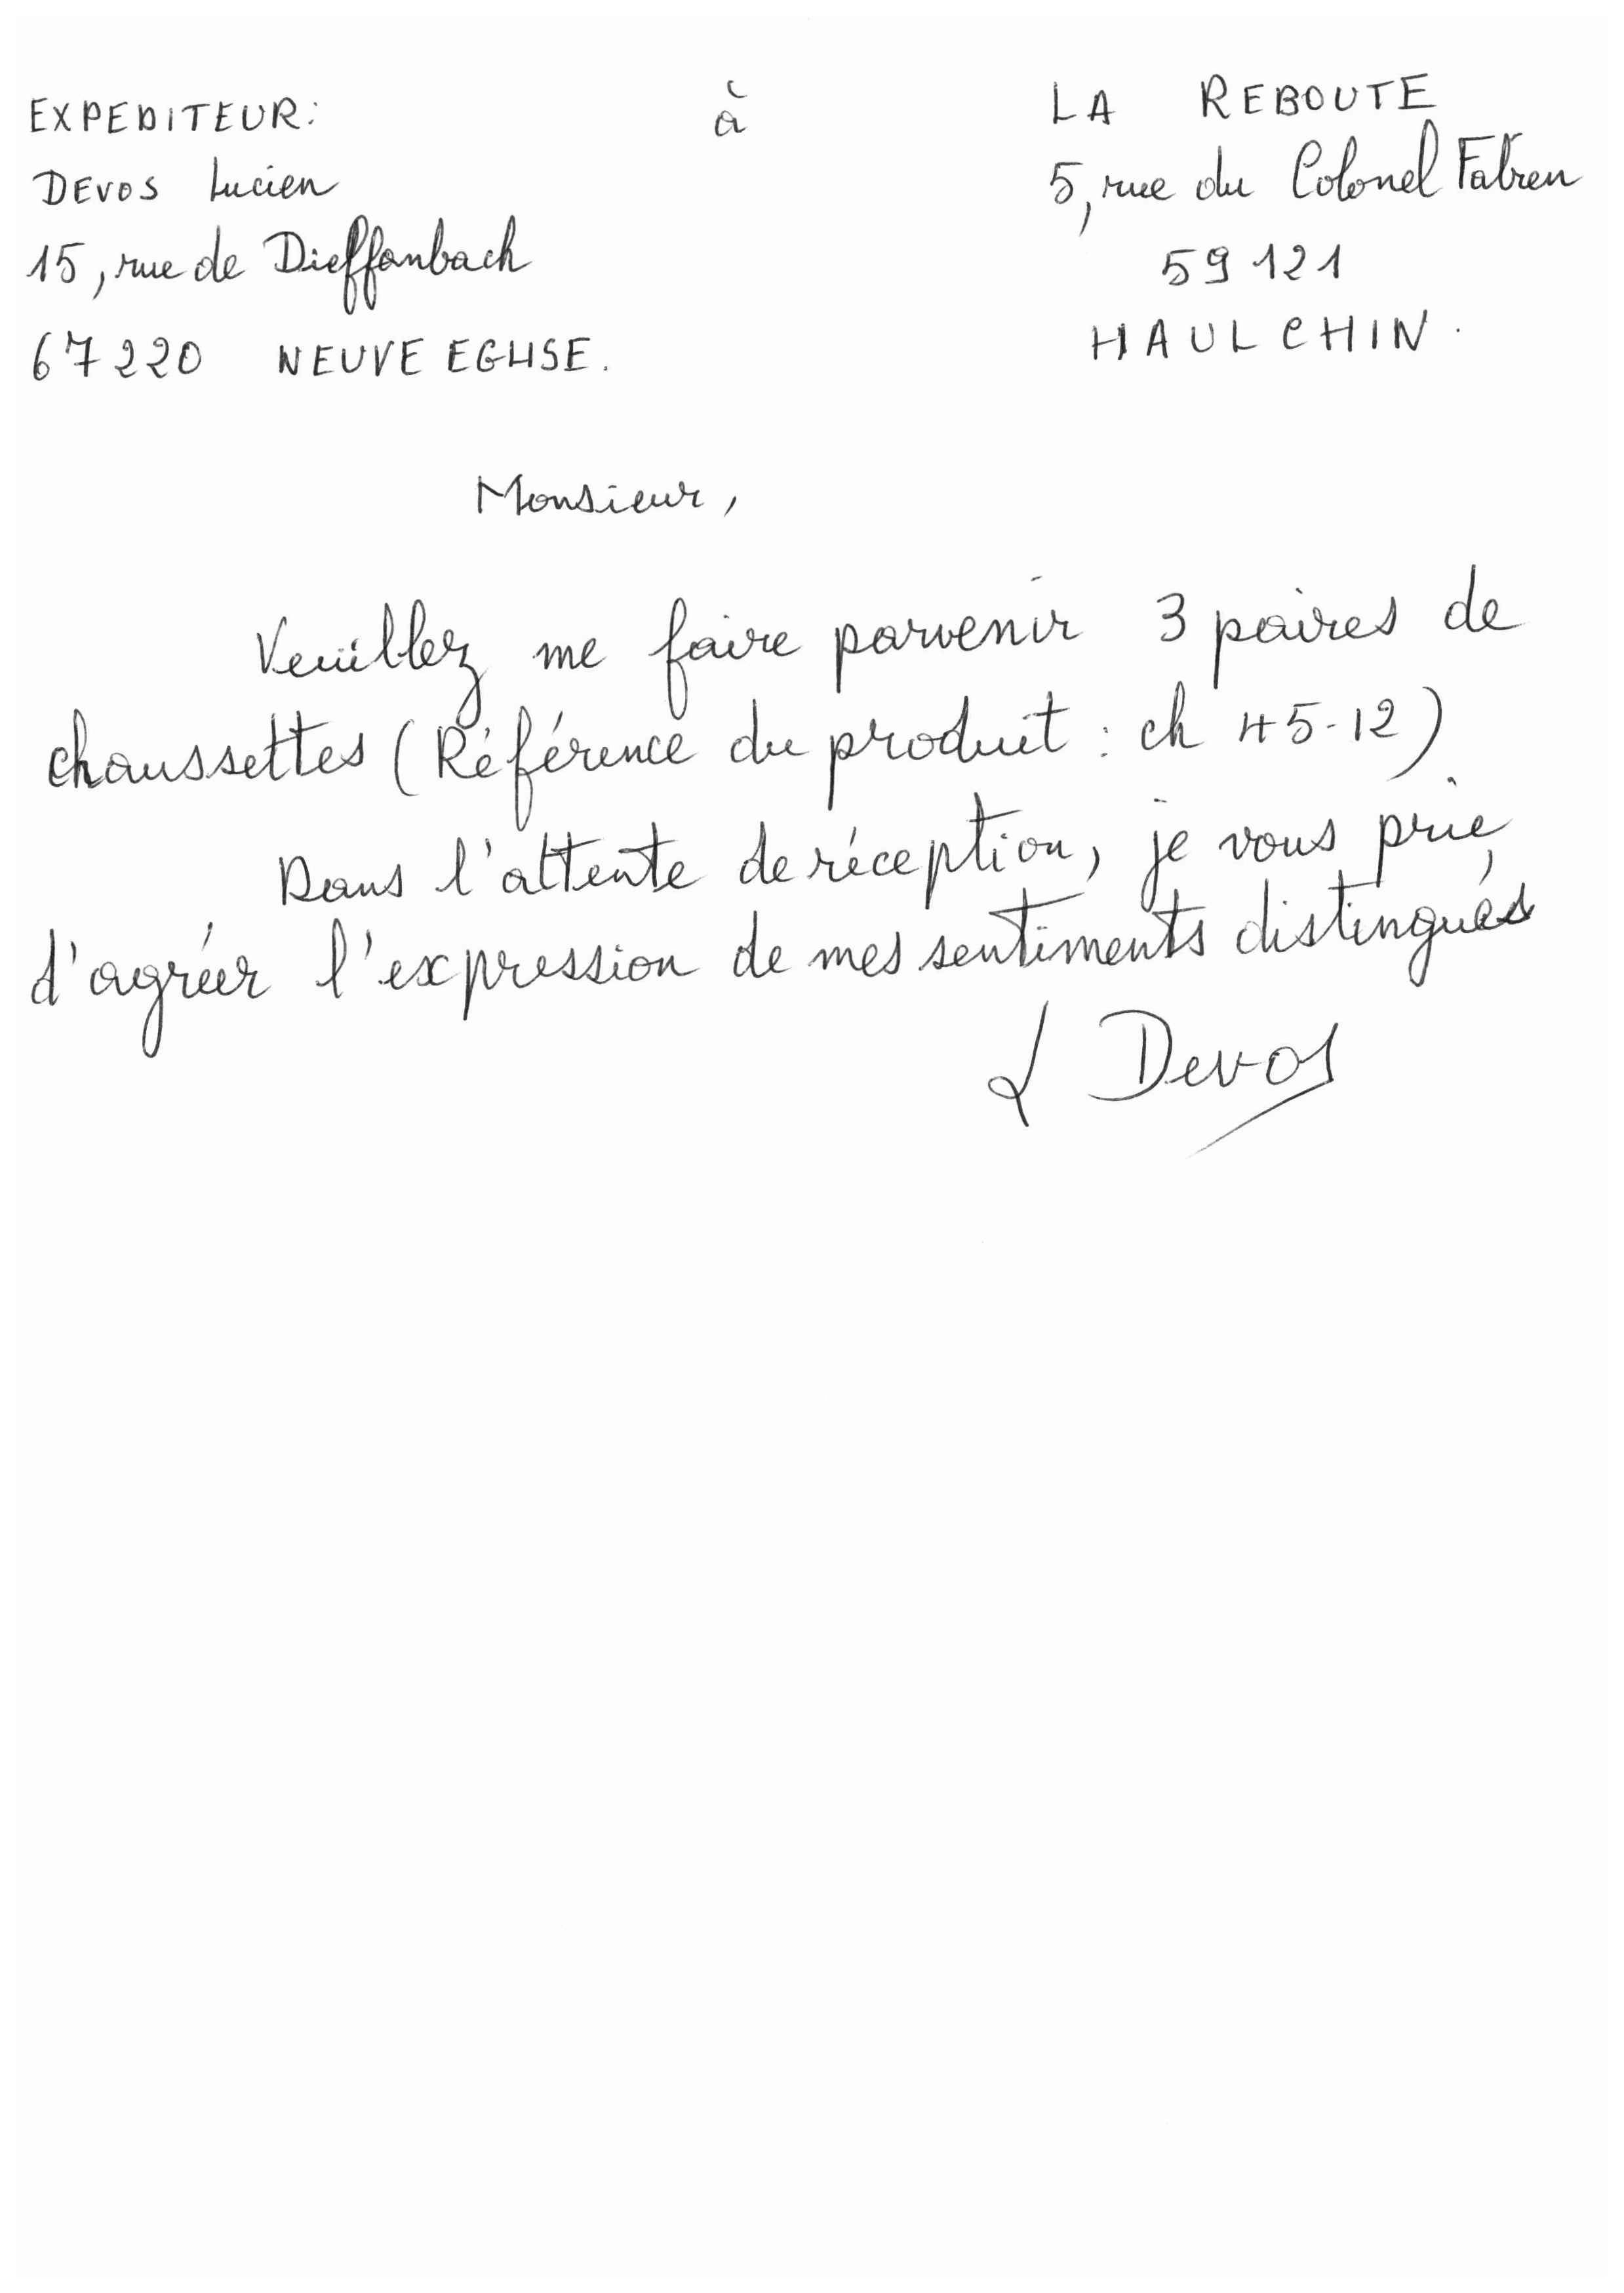 EXPEDITEUR:
DEVOS Lucien
15, rue de Dieffanbach
67220 NEUVE EGLISE.
à
LA REBOUTE
5, rue du Colonel Fabien
59121
HAULCHIN.
Monsieur,
Veuillez me faire parvenir 3 paires de
chaussettes (Référence du produit : ch 45-12).
Dans l'attente de réception, je vous prie,
d'agréer l'expression de mes sentiments distingués
L Devos